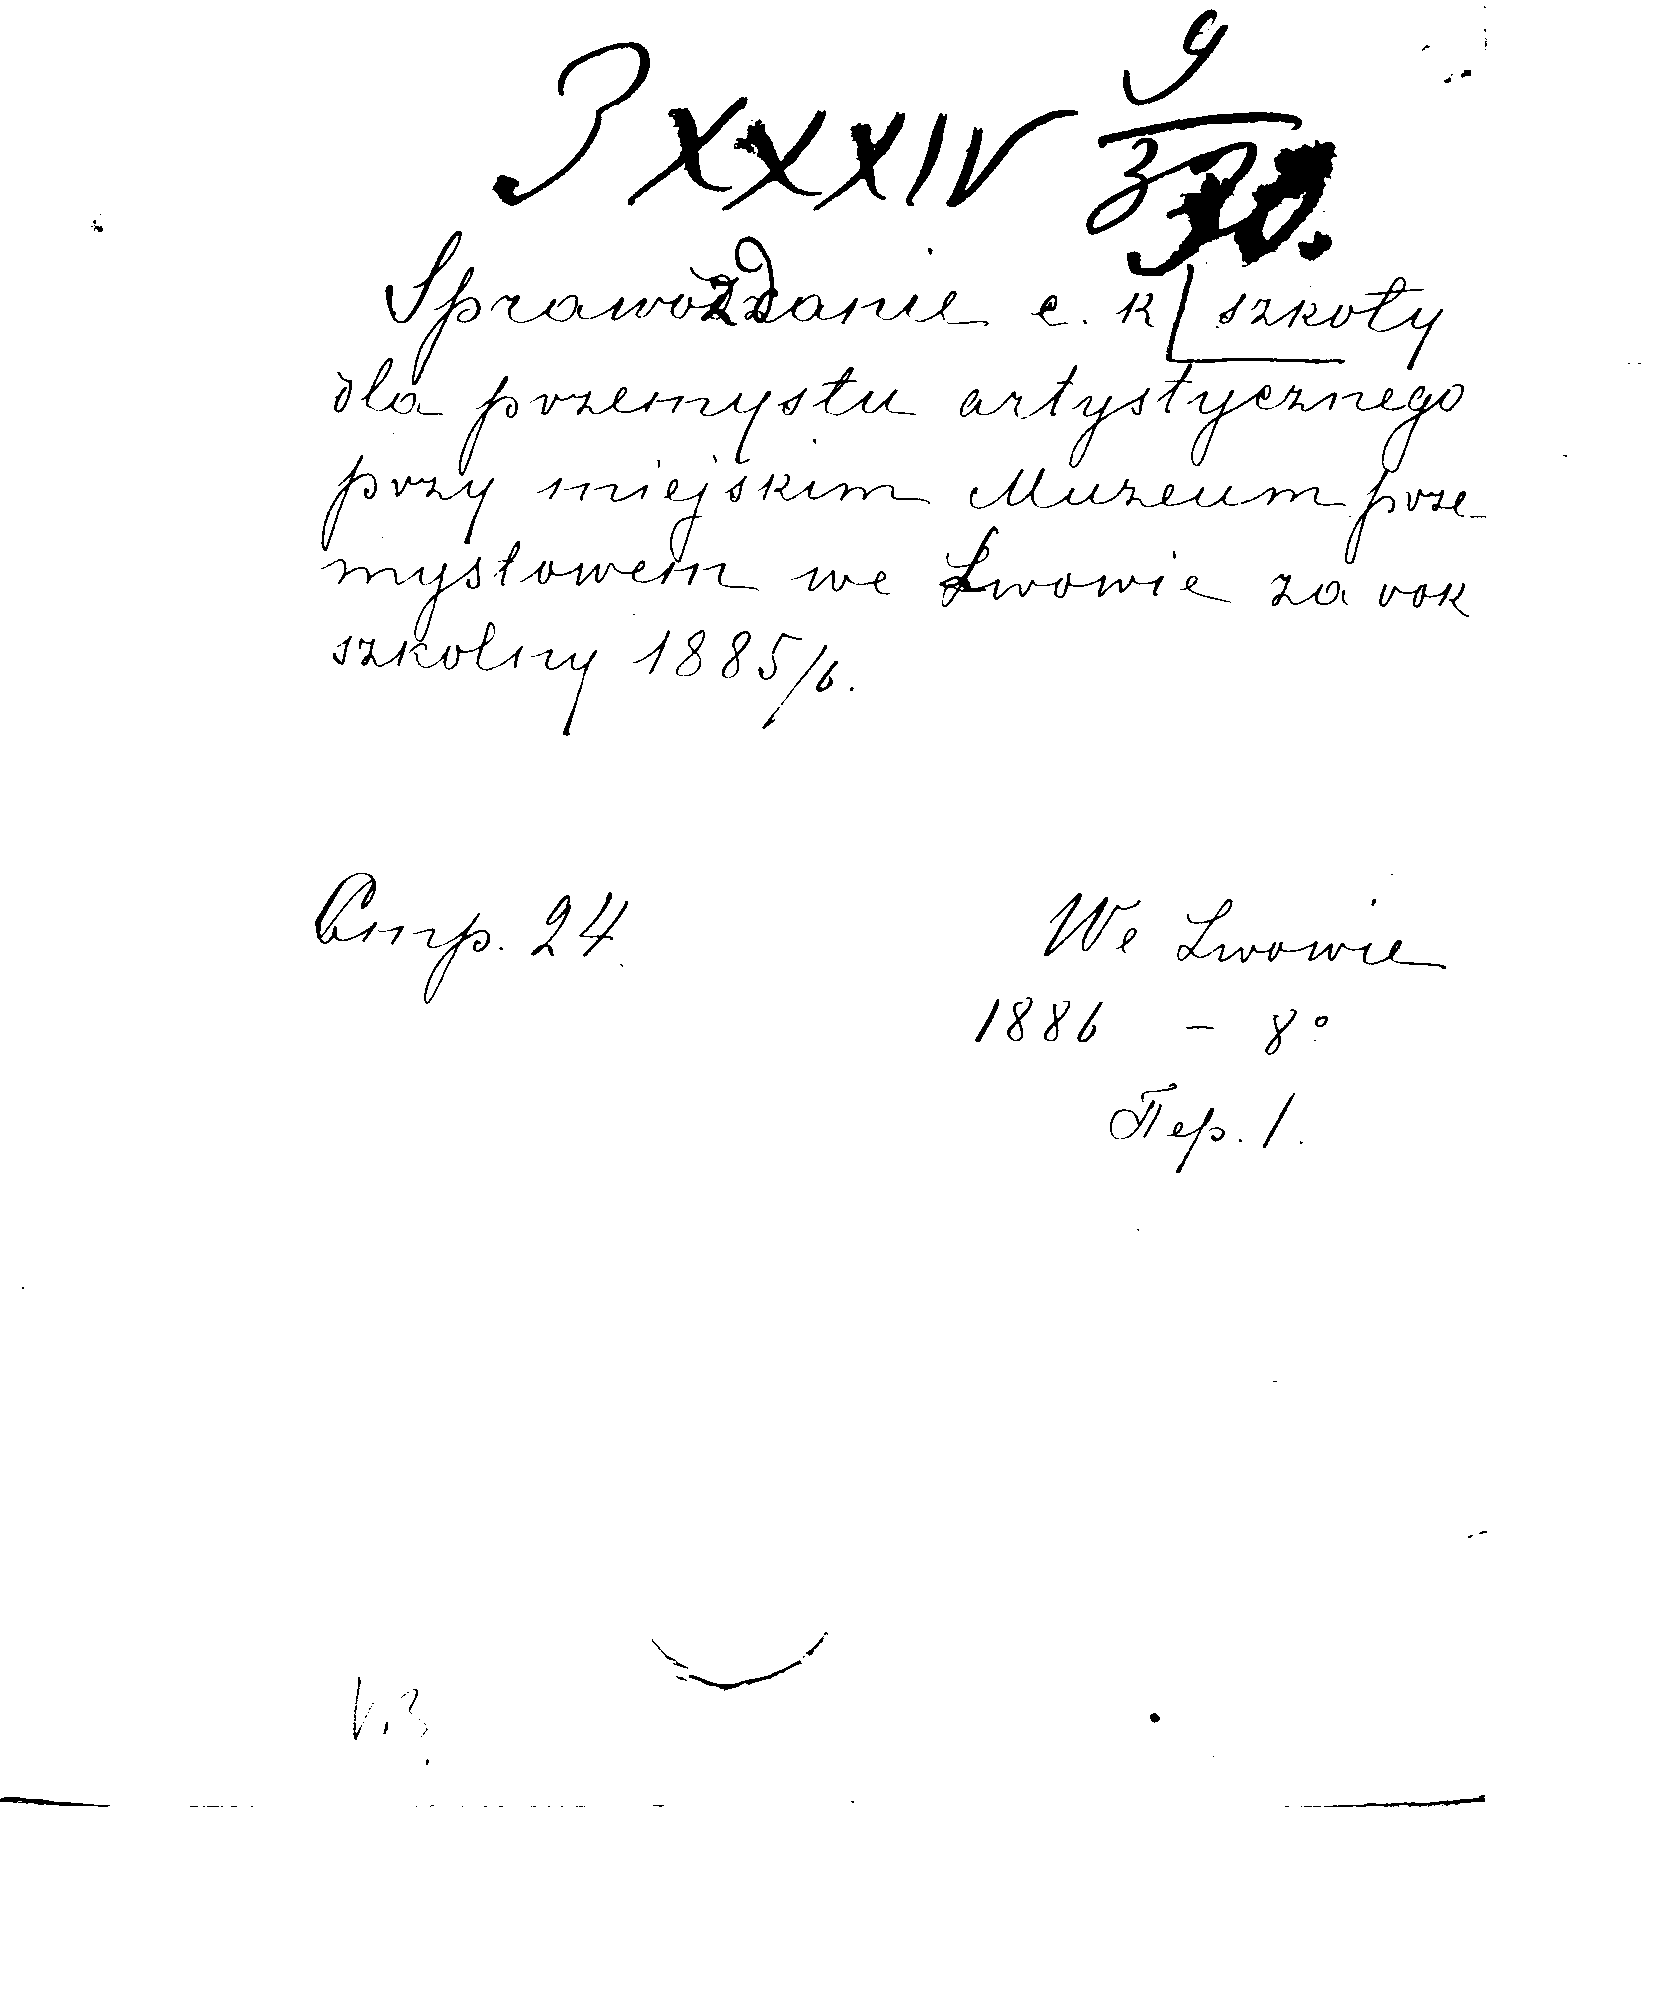 З XXXIV 9/
Sprawozdanie c. k szkoły
dla przemysłu artystycznego
przy miejskim Muzeum prze-
mysłowem we Lwowie za rok
szkolny 1885/6.
Стр. 24
We Lwowie
1886 – 8°
Пер. 1.